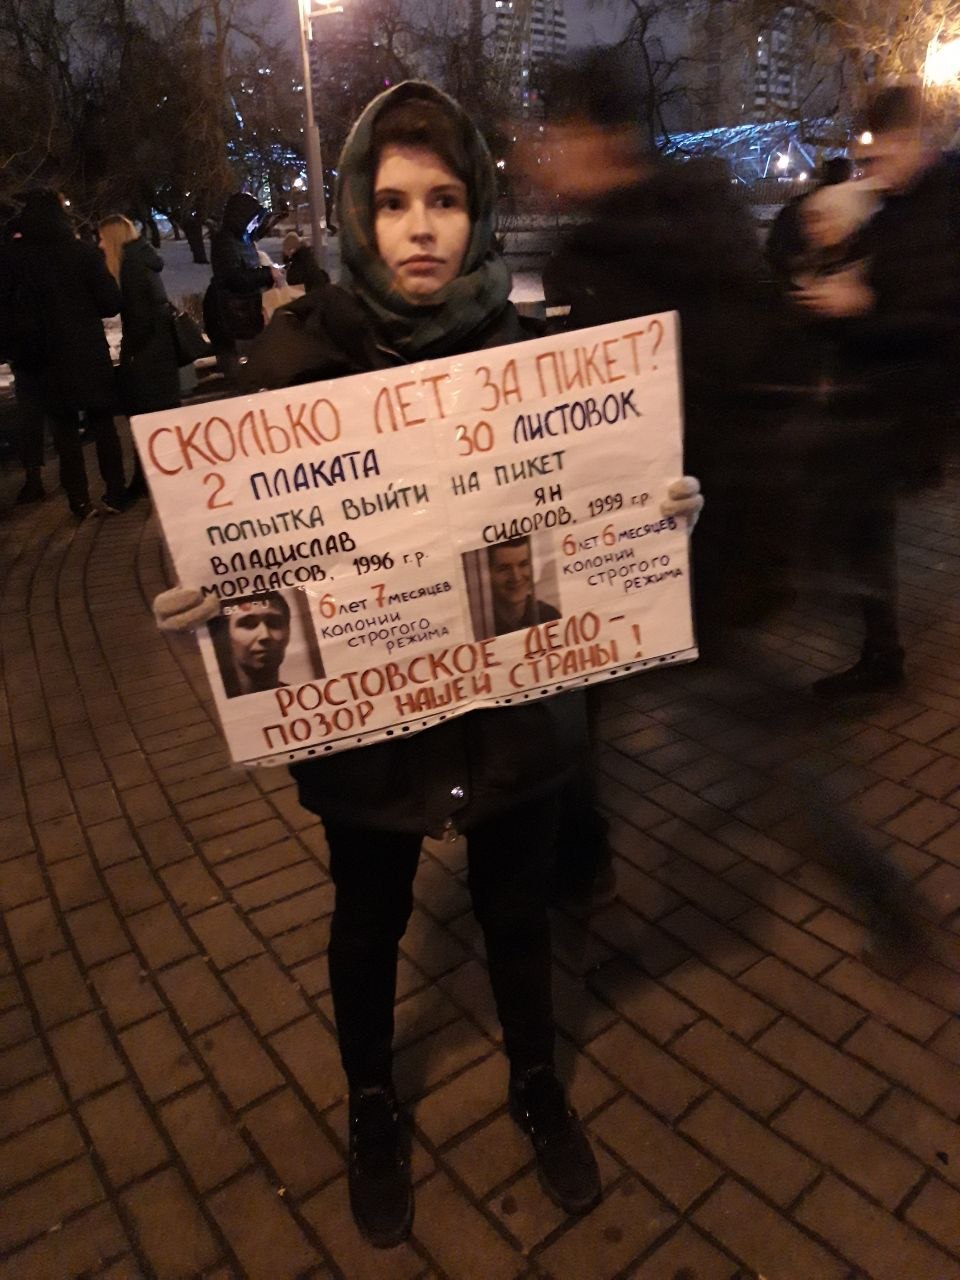 СКОЛЬКО ЛЕТ ЗА ПИКЕТ?
2 ПЛАКАТА 30 ЛИСТОВОК
ПОПЫТКА ВЫЙТИ НА ПИКЕТ
ВЛАДИСЛАВ
МОРДАСОВ, 1996 г.р.
6 лет 7 месяцев
колонии
строгого
режима
ЯН
СИДОРОВ, 1999 г.р.
6 лет 6 месяцев
колонии
строгого
режима
РОСТОВСКОЕ ДЕЛО –
ПОЗОР НАШЕЙ СТРАНЫ!